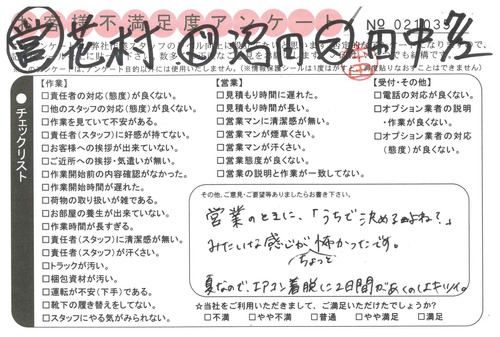 お客様不満足度アンケート
№ 02103
営 花村 沼田 田中
チェックリスト
【作業】
□責任者の対応(態度)が良くない。
□他のスタッフの対応(態度)が良くない。
□作業を見ていて不安がある。
□責任者(スタッフ)に好感が持てない。
□お客様への挨拶が出来ていない。
□ご近所への挨拶・気遣いが無い。
□作業開始前の内容確認がなかった。
□作業開始時間が遅れた。
□荷物の取り扱いが雑である。
□お部屋の養生が出来ていない。
□作業時間が長すぎる。
□責任者(スタッフ)に清潔感が無い。
□責任者(スタッフ)が汗くさい。
□トラックが汚い。
□梱包資材が汚い。
□運転が不安(下手)である。
□靴下の履き替えをしてない。
□スタッフにやる気がみられない。
【営業】
□見積もり時間に遅れた。
□見積もり時間が長い。
□営業マンに清潔感が無い。
□営業マンが煙草くさい。
□営業マンが汗くさい。
□営業態度が良くない。
□営業の説明と作業が一致してない。
【受付・その他】
□電話の対応が良くない。
□オプション業者の説明
・作業が良くない。
□オプション業者の対応
(態度)が良くない。
その他、ご意見・ご要望等ありましたらお書き下さい。
営業のときに、「うちで決めるよね?」
みたいな感じが怖かったです。
ちょっと
夏なので、エアコン着脱に2日間があくのはキツイ。
☆当社をご利用いただきまして、ご満足いただけたでしょうか?
□不満 □やや不満 □普通 □やや満足 □満足